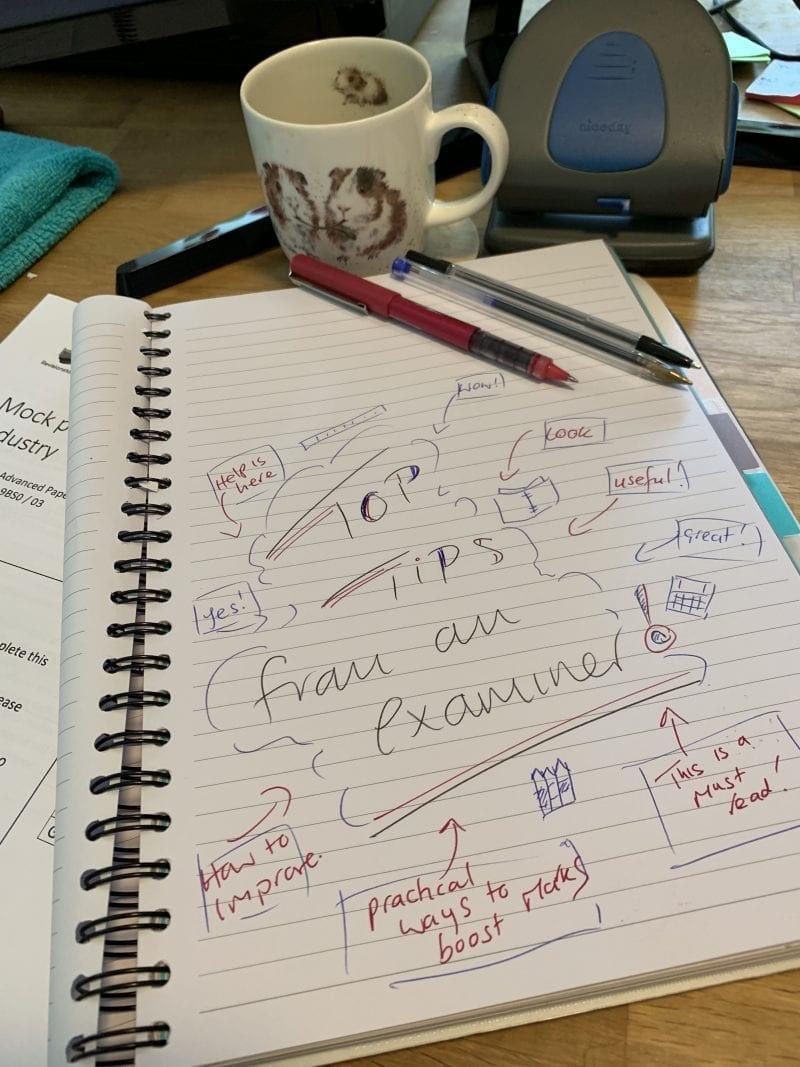 niceday
Revisionstation
Mock p
dustry
Advanced Pape
9BS0 / 03
plete this
ease
Wow!
Look
Help is
here
TOP
useful!
TIPS
Great!
Yes!
from an
examiner!
This is a
Must
read!
How to
improve.
practical
ways to
boost Marks